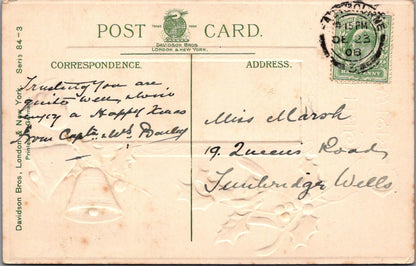 POST CARD.
Davidson Bros.
LONDON & NEW YORK.
CORRESPONDENCE.
ADDRESS.
Davidson Bros., London & New York. Series 84-3
5.15 PM
DE 23
08
HALFPENNY
Trusting you are
quite well, & will
enjoy a Happy Xmas
from Captn. & Mrs
Miss Marsh
19, Queens Road,
Tunbridge Wells.